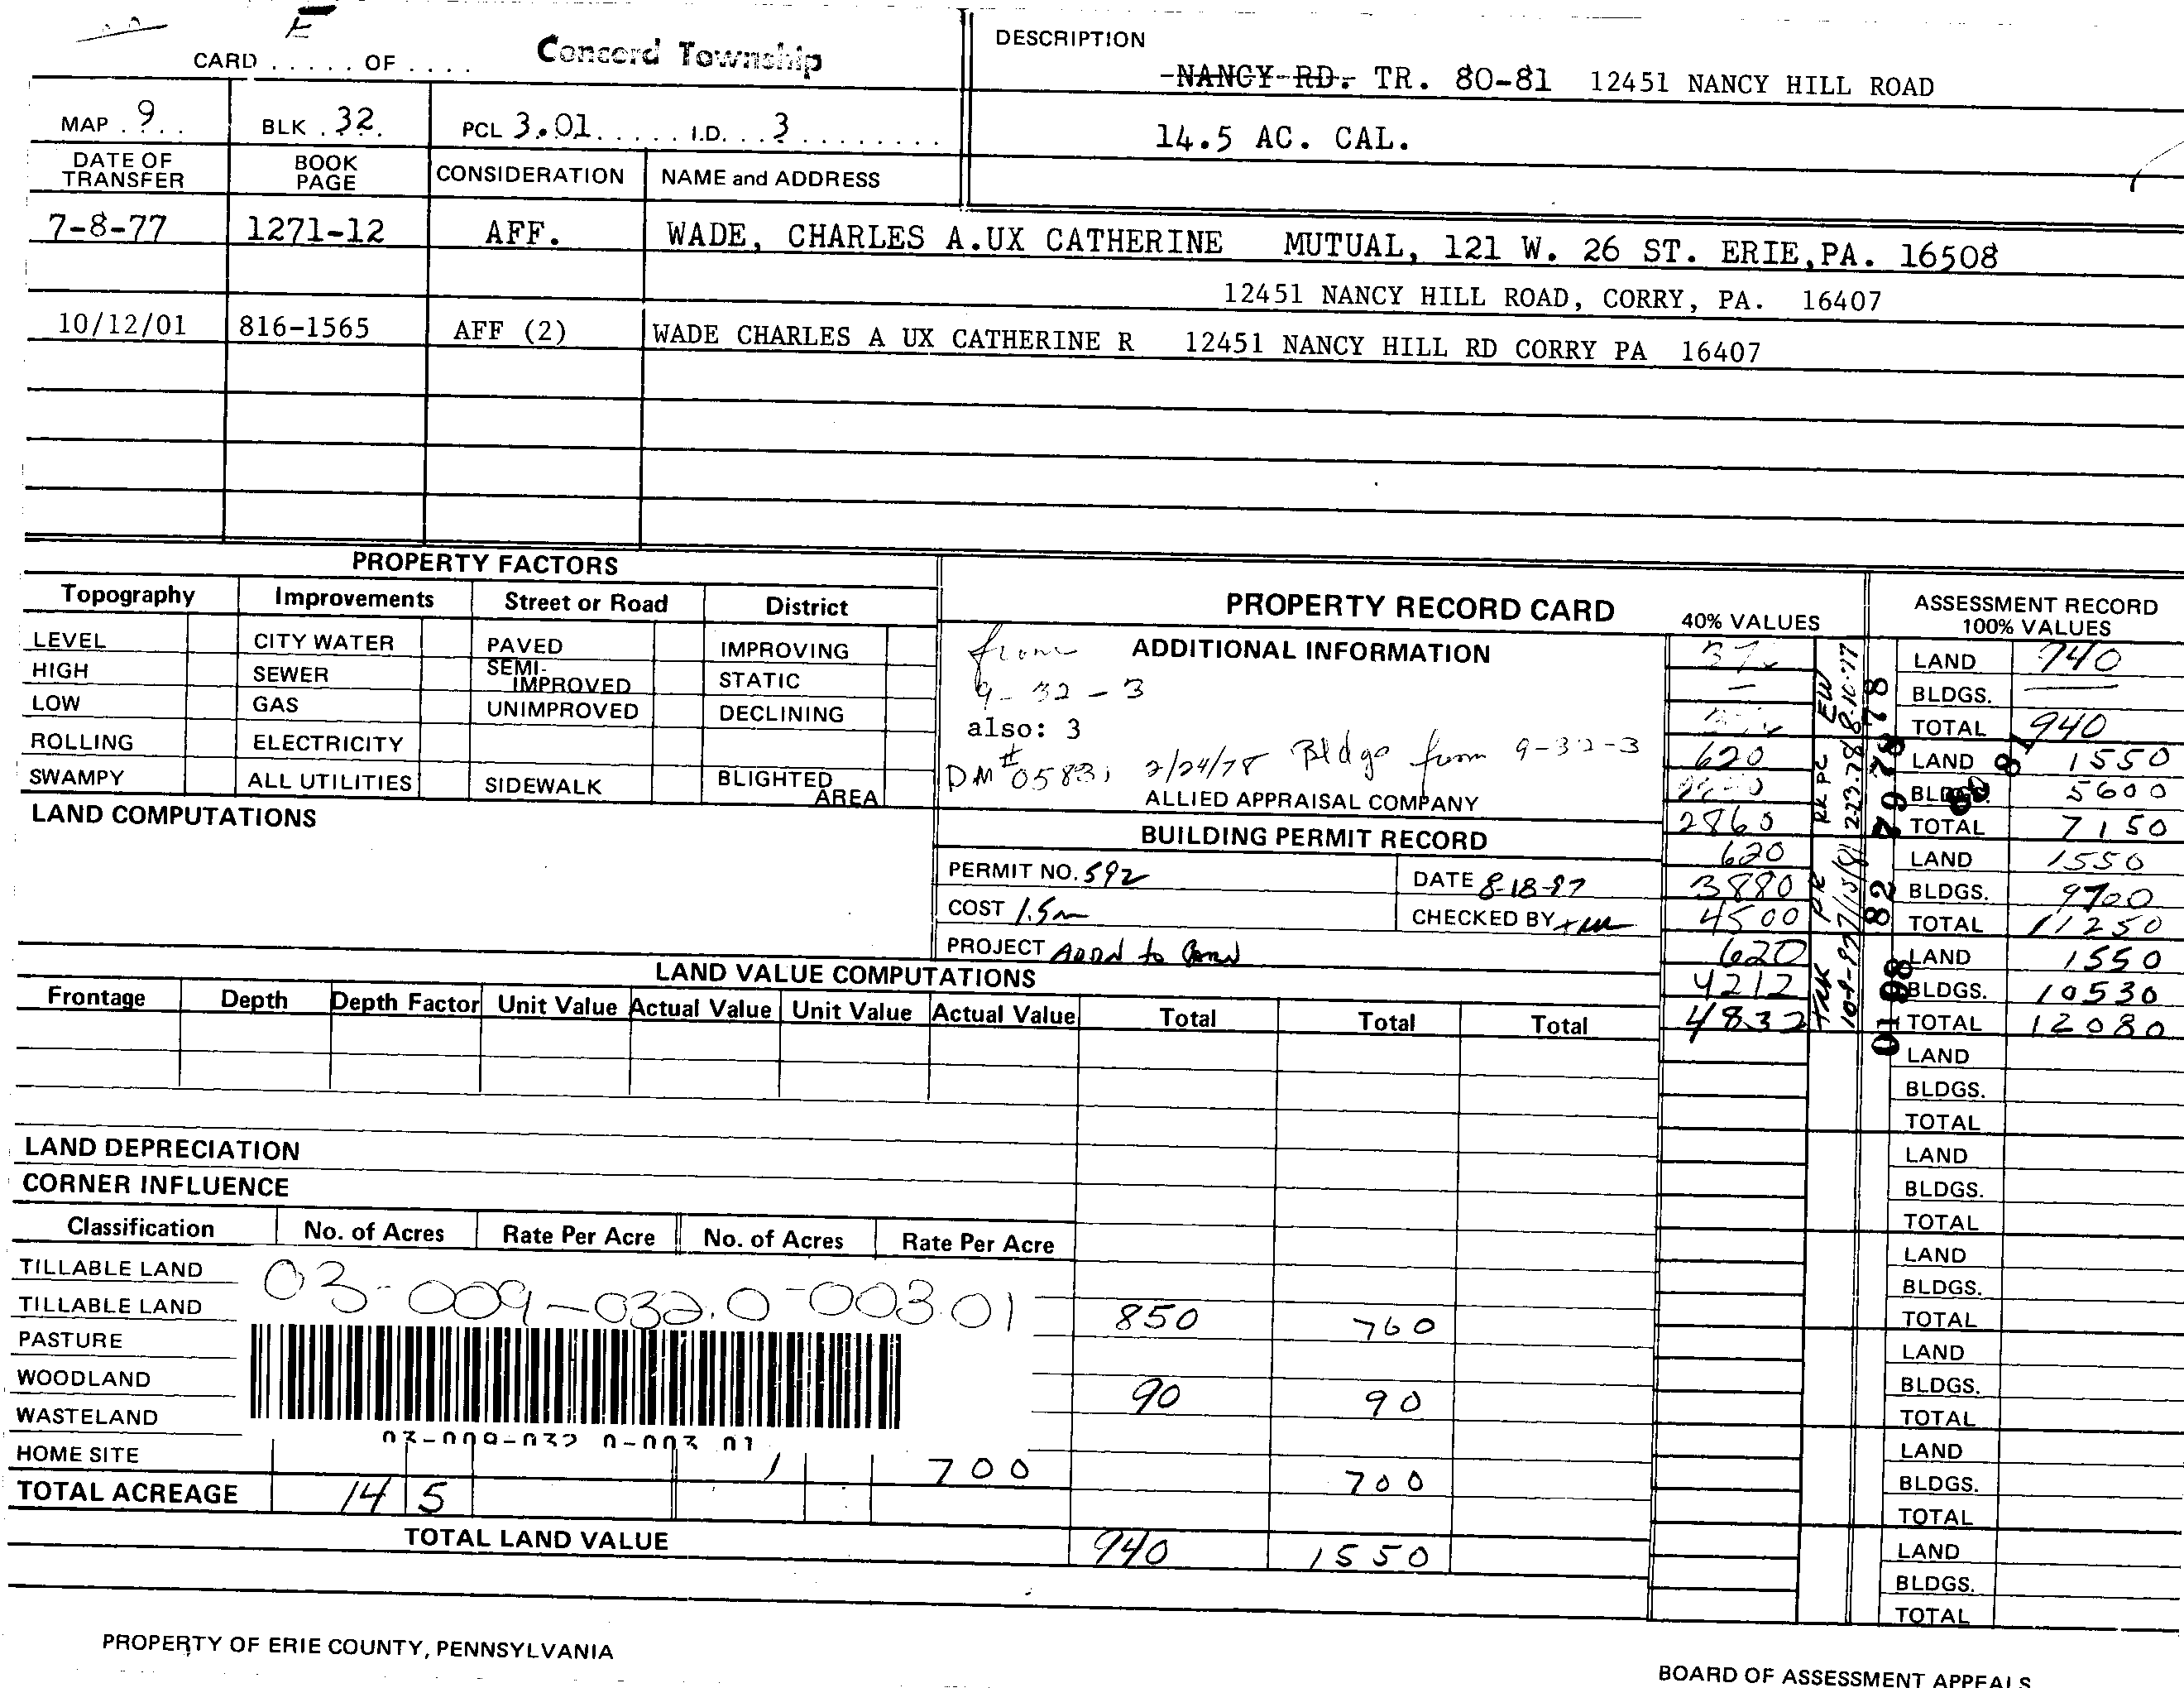 E
CARD . . . . . OF . . . .
Concord Township
DESCRIPTION
NANCY RD. TR. 80-81 12451 NANCY HILL ROAD
MAP . 9 . . BLK . 32 . PCL 3.01 . . . . . . I.D. . . . 3 . . . . . . . . .
14.5 AC. CAL.
DATE OF TRANSFER BOOK PAGE CONSIDERATION NAME and ADDRESS
7-8-77 1271-12 AFF. WADE, CHARLES A.UX CATHERINE MUTUAL, 121 W. 26 ST. ERIE,PA. 16508
12451 NANCY HILL ROAD, CORRY, PA. 16407
10/12/01 816-1565 AFF (2) WADE CHARLES A UX CATHERINE R 12451 NANCY HILL RD CORRY PA 16407
PROPERTY FACTORS
Topography Improvements Street or Road District
LEVEL CITY WATER PAVED IMPROVING
HIGH SEWER SEMI-IMPROVED STATIC
LOW GAS UNIMPROVED DECLINING
ROLLING ELECTRICITY
SWAMPY ALL UTILITIES SIDEWALK BLIGHTED AREA
LAND COMPUTATIONS
PROPERTY RECORD CARD
ADDITIONAL INFORMATION
from
9-32-3
also: 3
DM #0583 2/24/78 Bldgs from 9-32-3
ALLIED APPRAISAL COMPANY
BUILDING PERMIT RECORD
PERMIT NO. 592 DATE 8-18-97
COST 1.5m CHECKED BY
PROJECT ADDN to Barn
40% VALUES
620
2860
620
3880
4500
620
4212
4832
EW 8-10-77
RK PC 2-23-78
7/15/81
TMK 10-9-97
78
79 78
80 81
82
01 98
ASSESSMENT RECORD
100% VALUES
LAND 940
BLDGS. —
TOTAL 940
LAND 1550
BLDGS. 5600
TOTAL 7150
LAND 1550
BLDGS. 9700
TOTAL 11250
LAND 1550
BLDGS. 10530
TOTAL 12080
LAND
BLDGS.
TOTAL
LAND
BLDGS.
TOTAL
LAND
BLDGS.
TOTAL
LAND
BLDGS.
TOTAL
LAND
BLDGS.
TOTAL
LAND
BLDGS.
TOTAL
LAND VALUE COMPUTATIONS
Frontage Depth Depth Factor Unit Value Actual Value Unit Value Actual Value Total Total Total
LAND DEPRECIATION
CORNER INFLUENCE
Classification No. of Acres Rate Per Acre No. of Acres Rate Per Acre
TILLABLE LAND
03-009-032.0-003.01
TILLABLE LAND 850 760
PASTURE
WOODLAND 90 90
WASTELAND
03-009-032 0-003 01
HOME SITE 1 700 700
TOTAL ACREAGE 14 5
TOTAL LAND VALUE 940 1550
PROPERTY OF ERIE COUNTY, PENNSYLVANIA
BOARD OF ASSESSMENT APPEALS